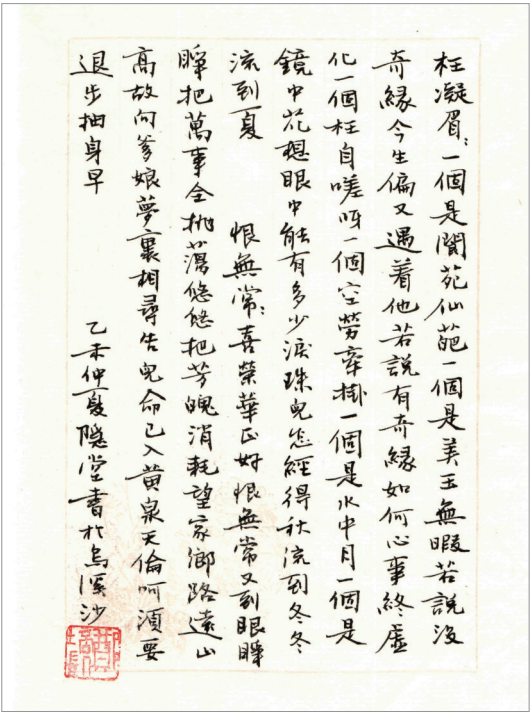 枉凝眉：一個是閬苑仙葩一個是美玉無暇若說沒
奇緣今生偏又遇着他若說有奇緣如何心事終虛
化一個枉自嗟呀一個空勞牽掛一個是水中月一個是
鏡中花想眼中能有多少淚珠兒怎經得秋流到冬冬
流到夏 恨無常：喜榮華正好恨無常又到眼睜
睜把萬事全拋蕩悠悠把芳魄消耗望家鄉路遠山
高故向爹娘夢裏相尋告兒命已入黃泉天倫呵須要
退步抽身早
乙未仲夏隱堂書於烏溪沙